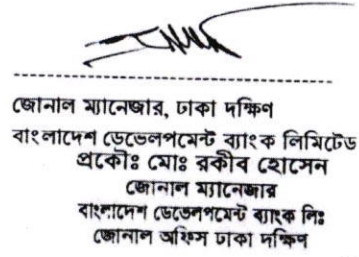 জোনাল ম্যানেজার, ঢাকা দক্ষিণ
বাংলাদেশ ডেভেলপমেন্ট ব্যাংক লিমিটেড
প্রকৌঃ মোঃ রকীব হোসেন
জোনাল ম্যানেজার
বাংলাদেশ ডেভেলপমেন্ট ব্যাংক লিঃ
জোনাল অফিস ঢাকা দক্ষিণ